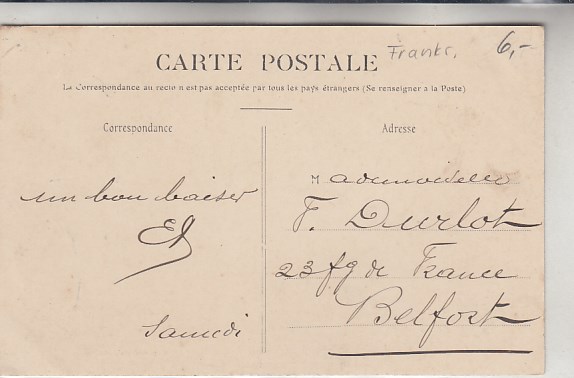 Frankr. 6,-
CARTE POSTALE
La Correspondance au recto n'est pas acceptée par tous les pays étrangers (Se renseigner à la Poste)
Correspondance
un bon baiser
Samedi
Adresse
Mademoiselle
F. Durlot
23 fg de France
Belfort